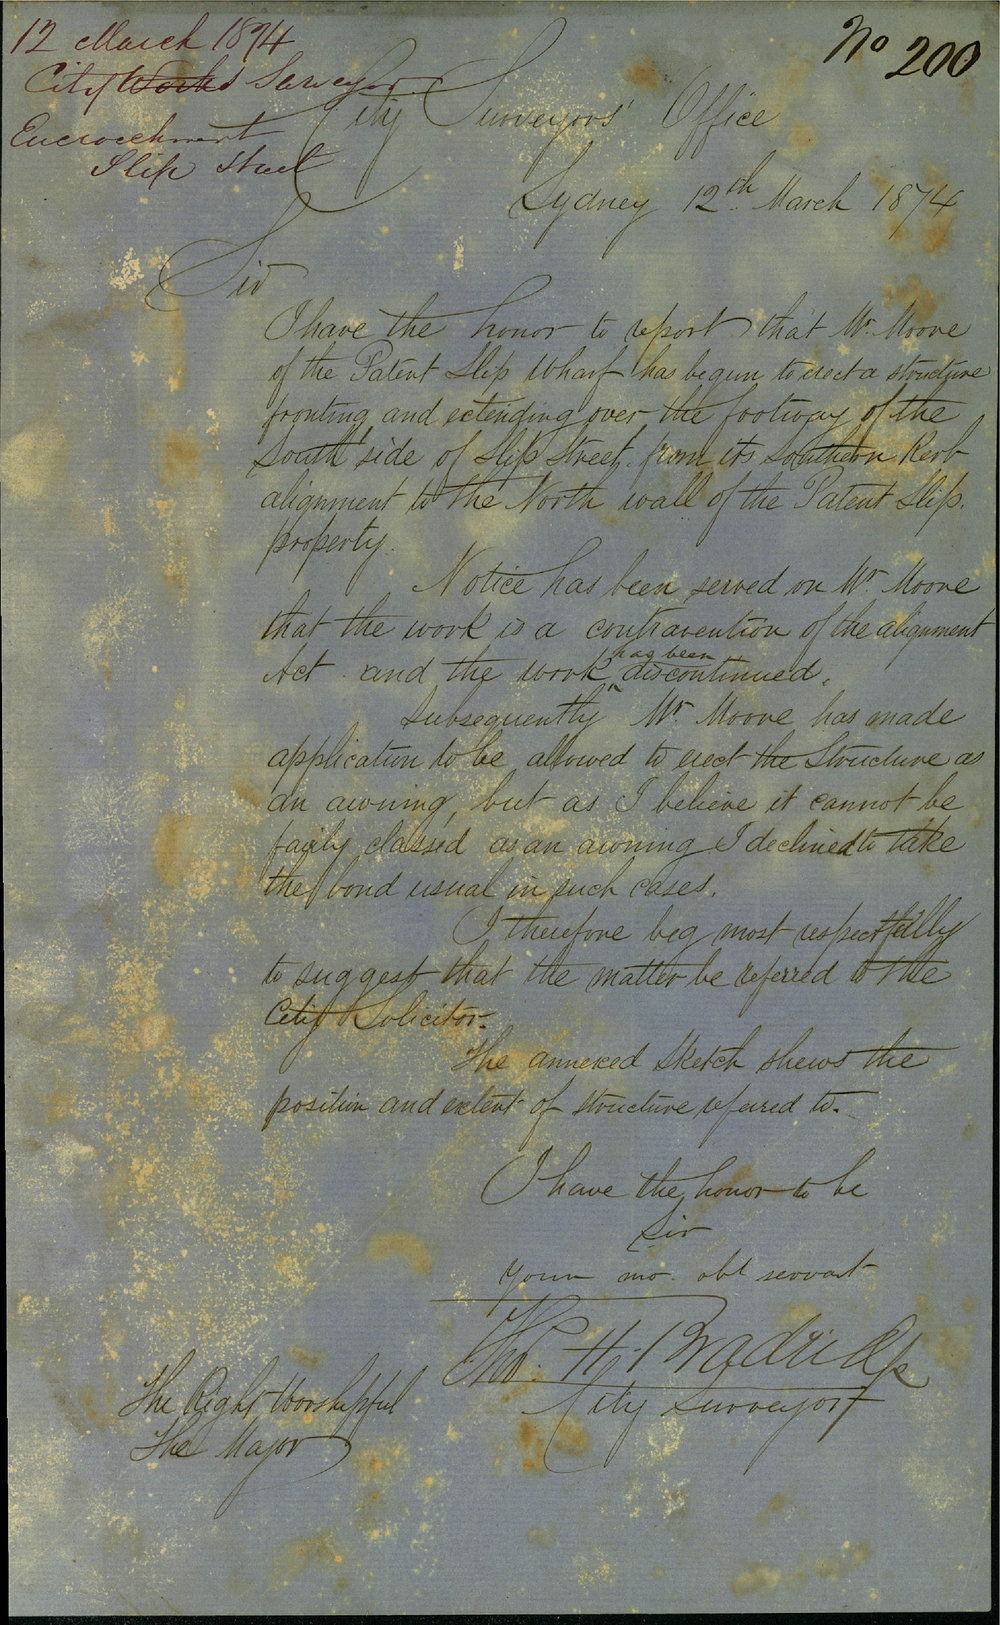 12 March 1874
City Works Surveyor
Encroachment
Slip Street
No 200
City Surveyors' Office
Sydney 12th March 1874
Sir
I have the honor to report that Mr. Moore
of the Patent Slip Wharf has begun to erect a structure
fronting and extending over the footway of the
South side of Slip Street, from its Southern Kerb
alignment to the North wall of the Patent Slip.
property.
Notice has been served on Mr Moore
that the work is a contravention of the alignment
Act and the work has been discontinued.
Subsequently Mr. Moore has made
application to be allowed to erect the Structure as
an awning, but as I believe it cannot be
fairly classed as an awning I declined to take
the bond usual in such cases.
I therefore beg most respectfully
to suggest that the matter be referred to the
City Solicitor.
The annexed Sketch shews the
position and extent of structure referred to.
I have the honor to be
Sir
Your mo. obt servant
Tho. H.
City Surveyor
The Right Worshipful
The Mayor